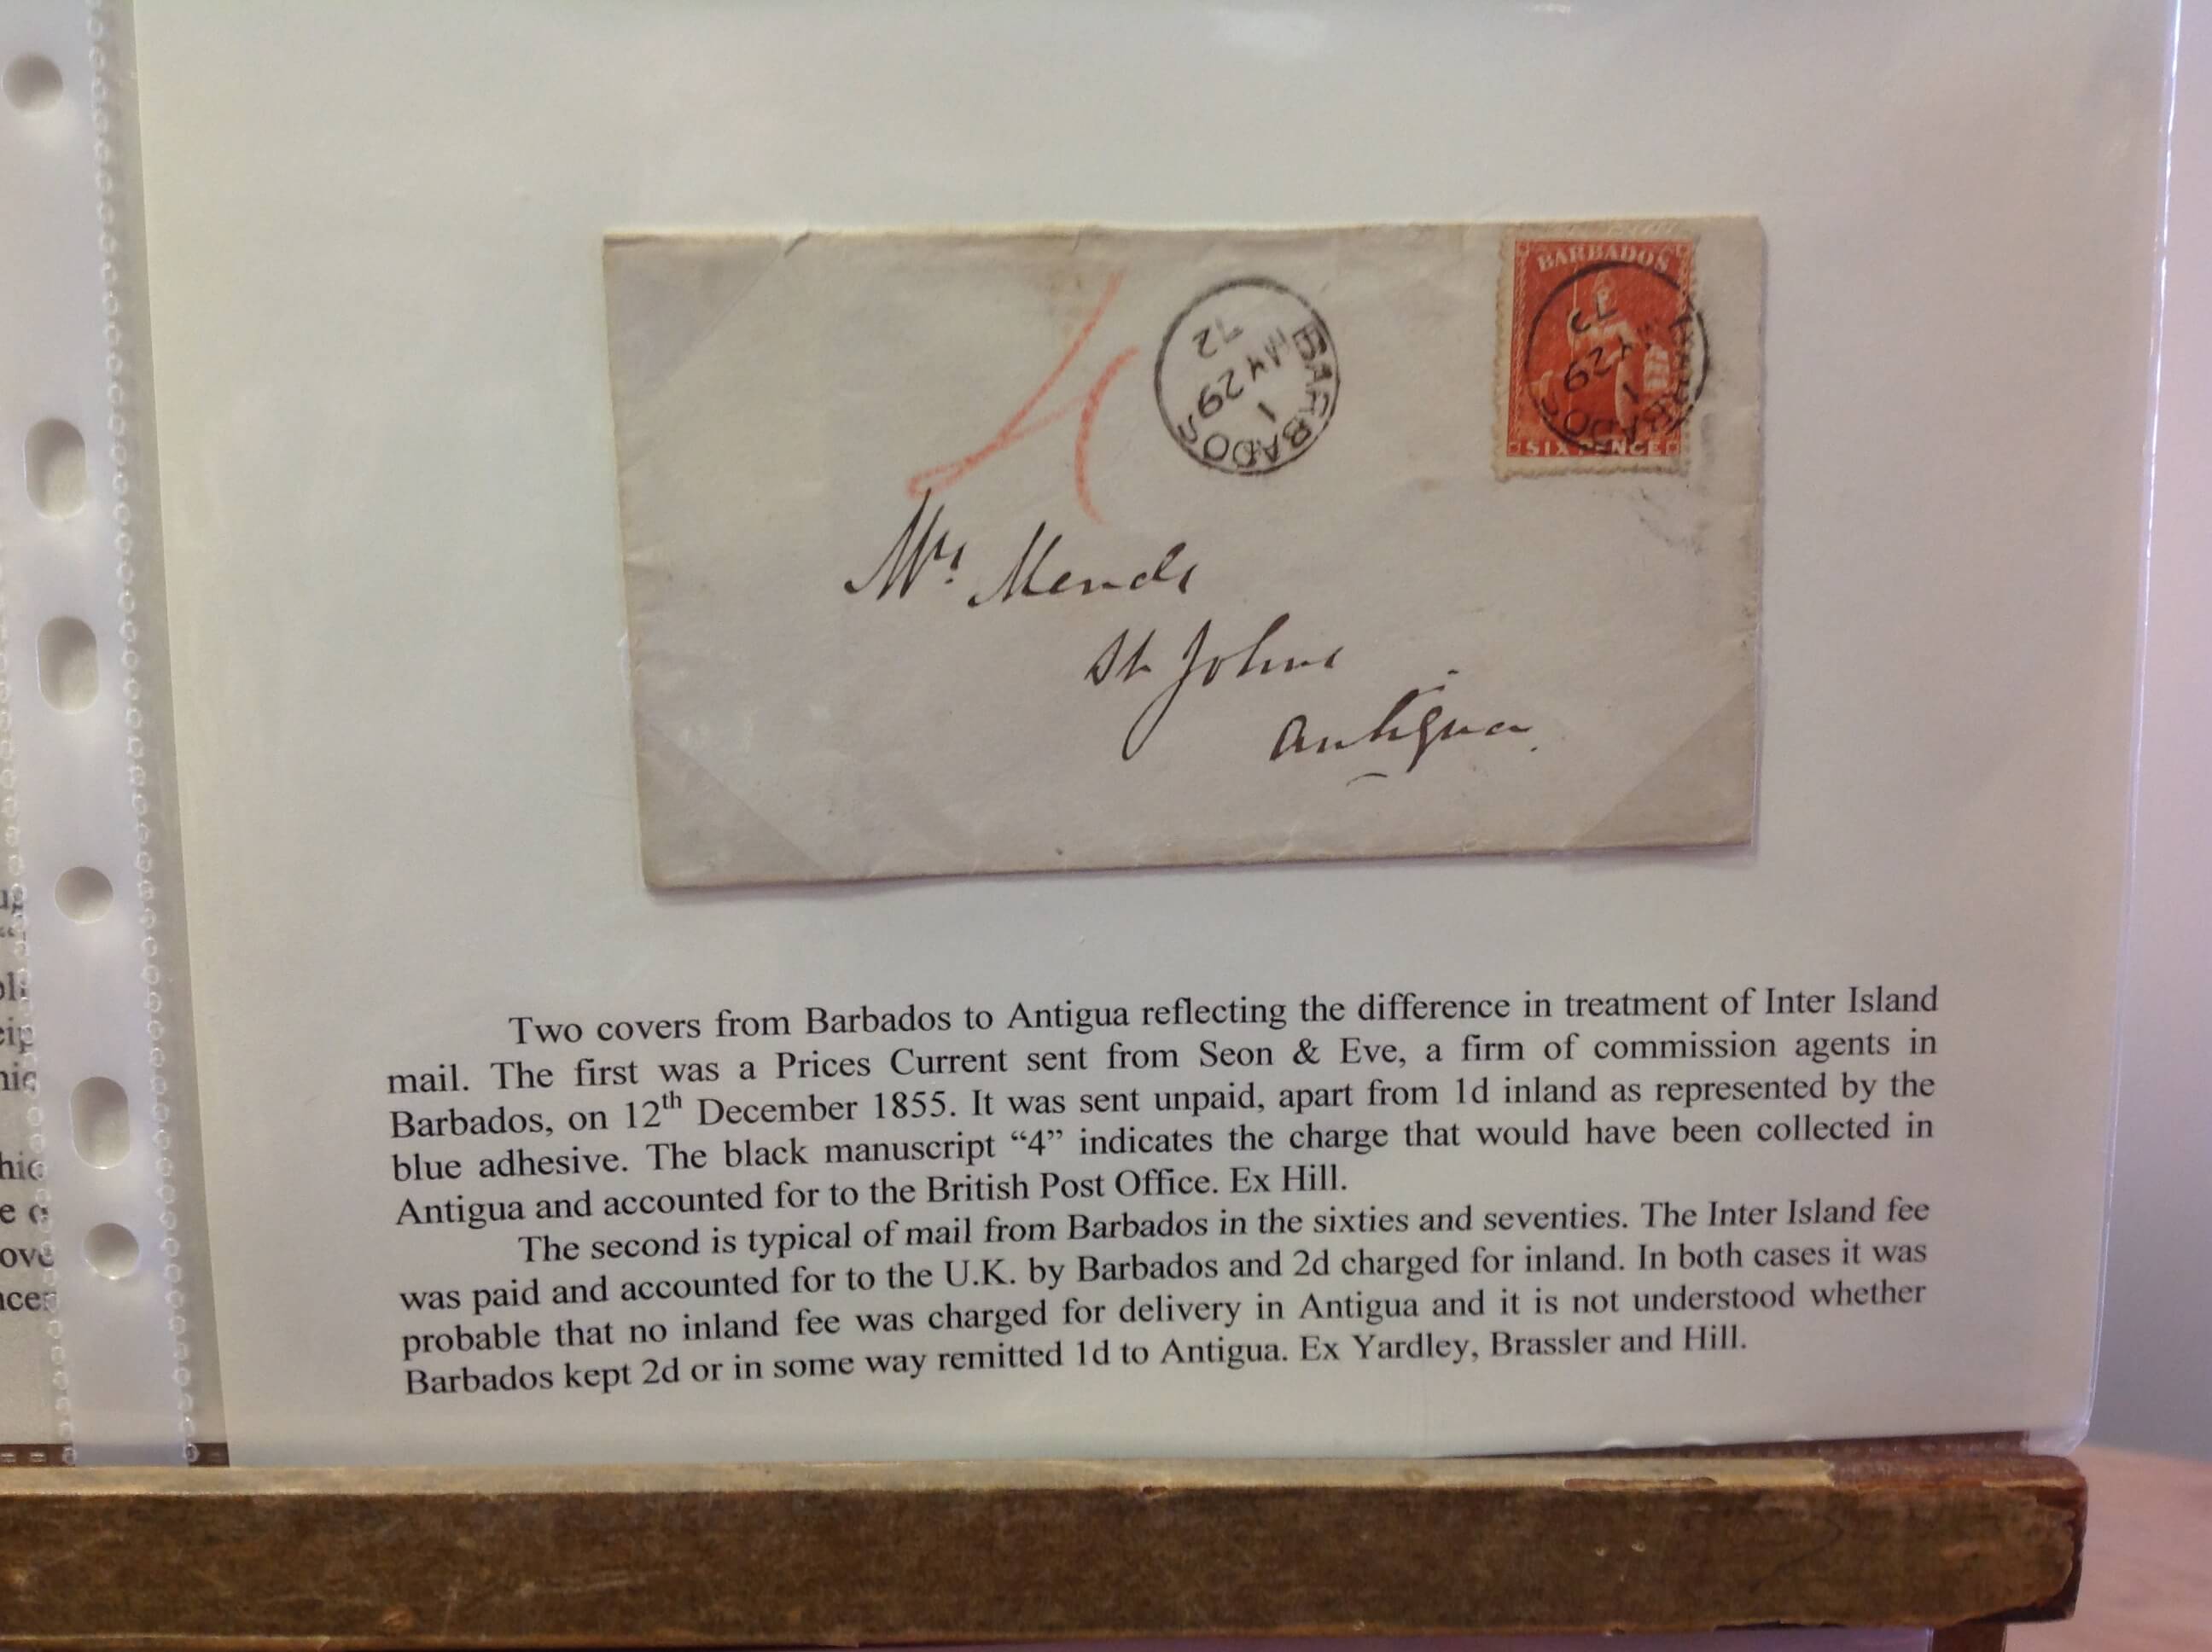 BARBADOS
SIXPENCE
BARBADOS
1
MY 29
72
BARBADOS
1
MY 29
72
4
Mrs Mends
St Johns
Antigua.
Two covers from Barbados to Antigua reflecting the difference in treatment of Inter Island
mail. The first was a Prices Current sent from Seon & Eve, a firm of commission agents in
Barbados, on 12th December 1855. It was sent unpaid, apart from 1d inland as represented by the
blue adhesive. The black manuscript “4” indicates the charge that would have been collected in
Antigua and accounted for to the British Post Office. Ex Hill.
The second is typical of mail from Barbados in the sixties and seventies. The Inter Island fee
was paid and accounted for to the U.K. by Barbados and 2d charged for inland. In both cases it was
probable that no inland fee was charged for delivery in Antigua and it is not understood whether
Barbados kept 2d or in some way remitted 1d to Antigua. Ex Yardley, Brassler and Hill.